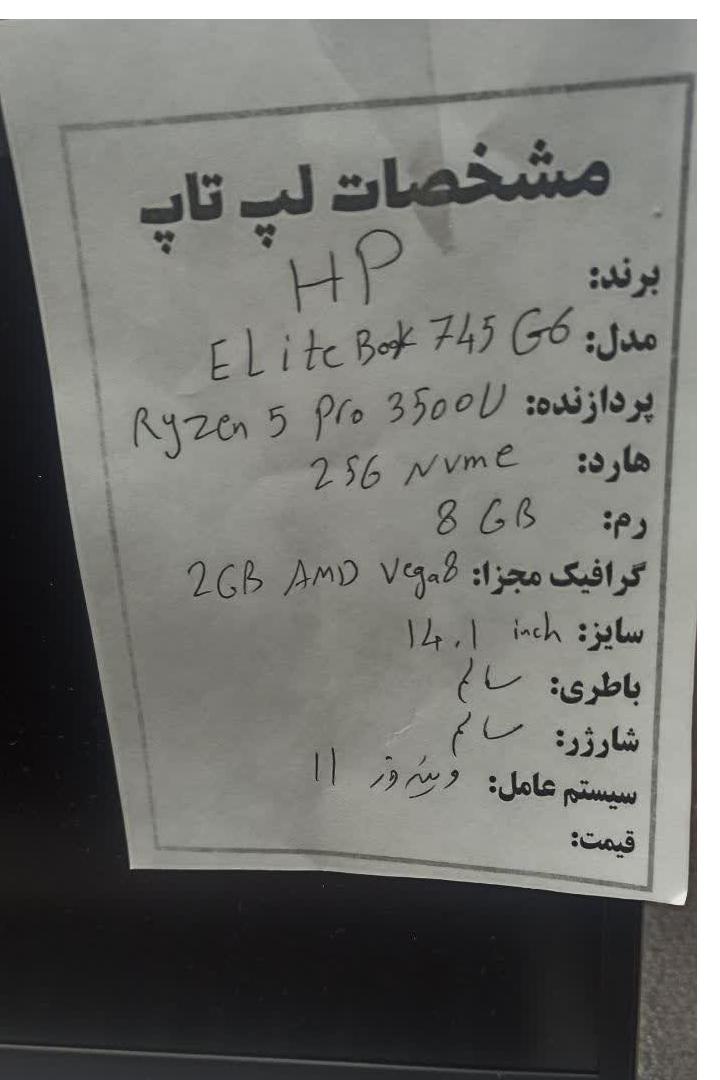 مشخصات لپ تاپ
برند: HP
مدل: ELite Book 745 G6
پردازنده: Ryzen 5 Pro 3500U
هارد: 256 Nvme
رم: 8 GB
گرافیک مجزا: 2GB AMD Vega8
سایز: 14.1 inch
باطری: سالم
شارژر: سالم
سیستم عامل: ویندوز 11
قیمت: